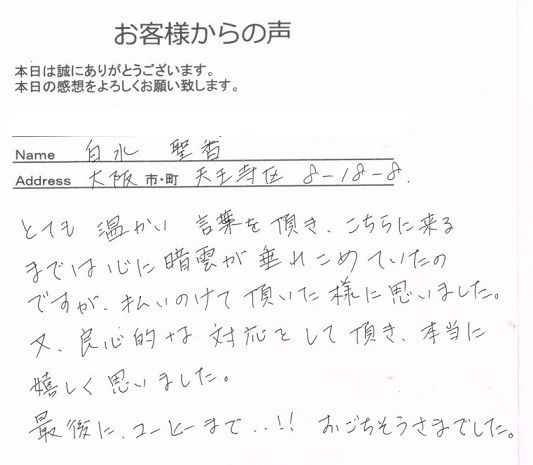 お客様からの声
本日は誠にありがとうございます。
本日の感想をよろしくお願い致します。
Name 白水 聖香
Address 大阪 市・町 天王寺区 8-18-8.
とても 温かい 言葉を頂き、こちらに来る
までは心に暗雲が垂れこめていたの
ですが、払いのけて頂いた様に思いました。
又、良心的な 対応をして頂き、本当に
嬉しく思いました。
最後に、コーヒーまで..!! おごちそうさまでした。